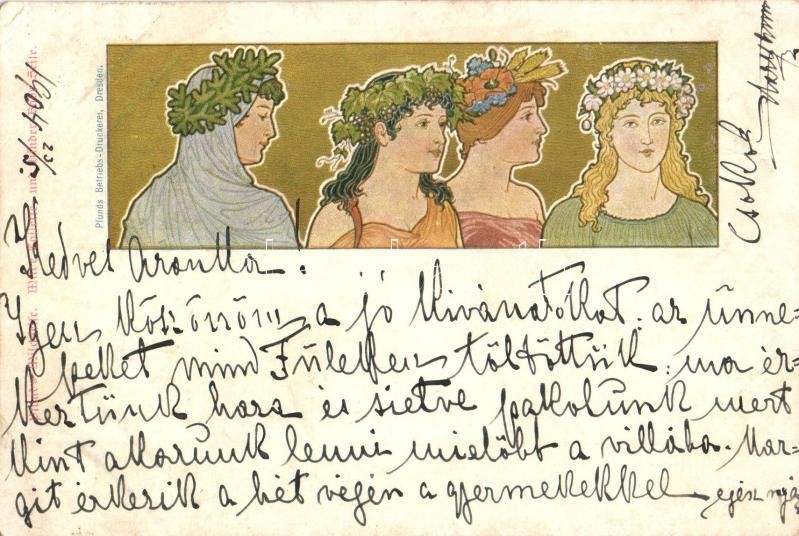 Pfunds Betriebs-Druckerei, Dresden.
Kedves Aranka!
Igen köszönöm a jó kivánatokat. az ünne-
peket mind Füleken töltöttük, ma ér-
keztünk haza és sietve pakolunk mert
kint akarunk lenni mielőbb a villába. Mar-
git érkezik a hét végén a gyermekekkel egész nyá
Csókol